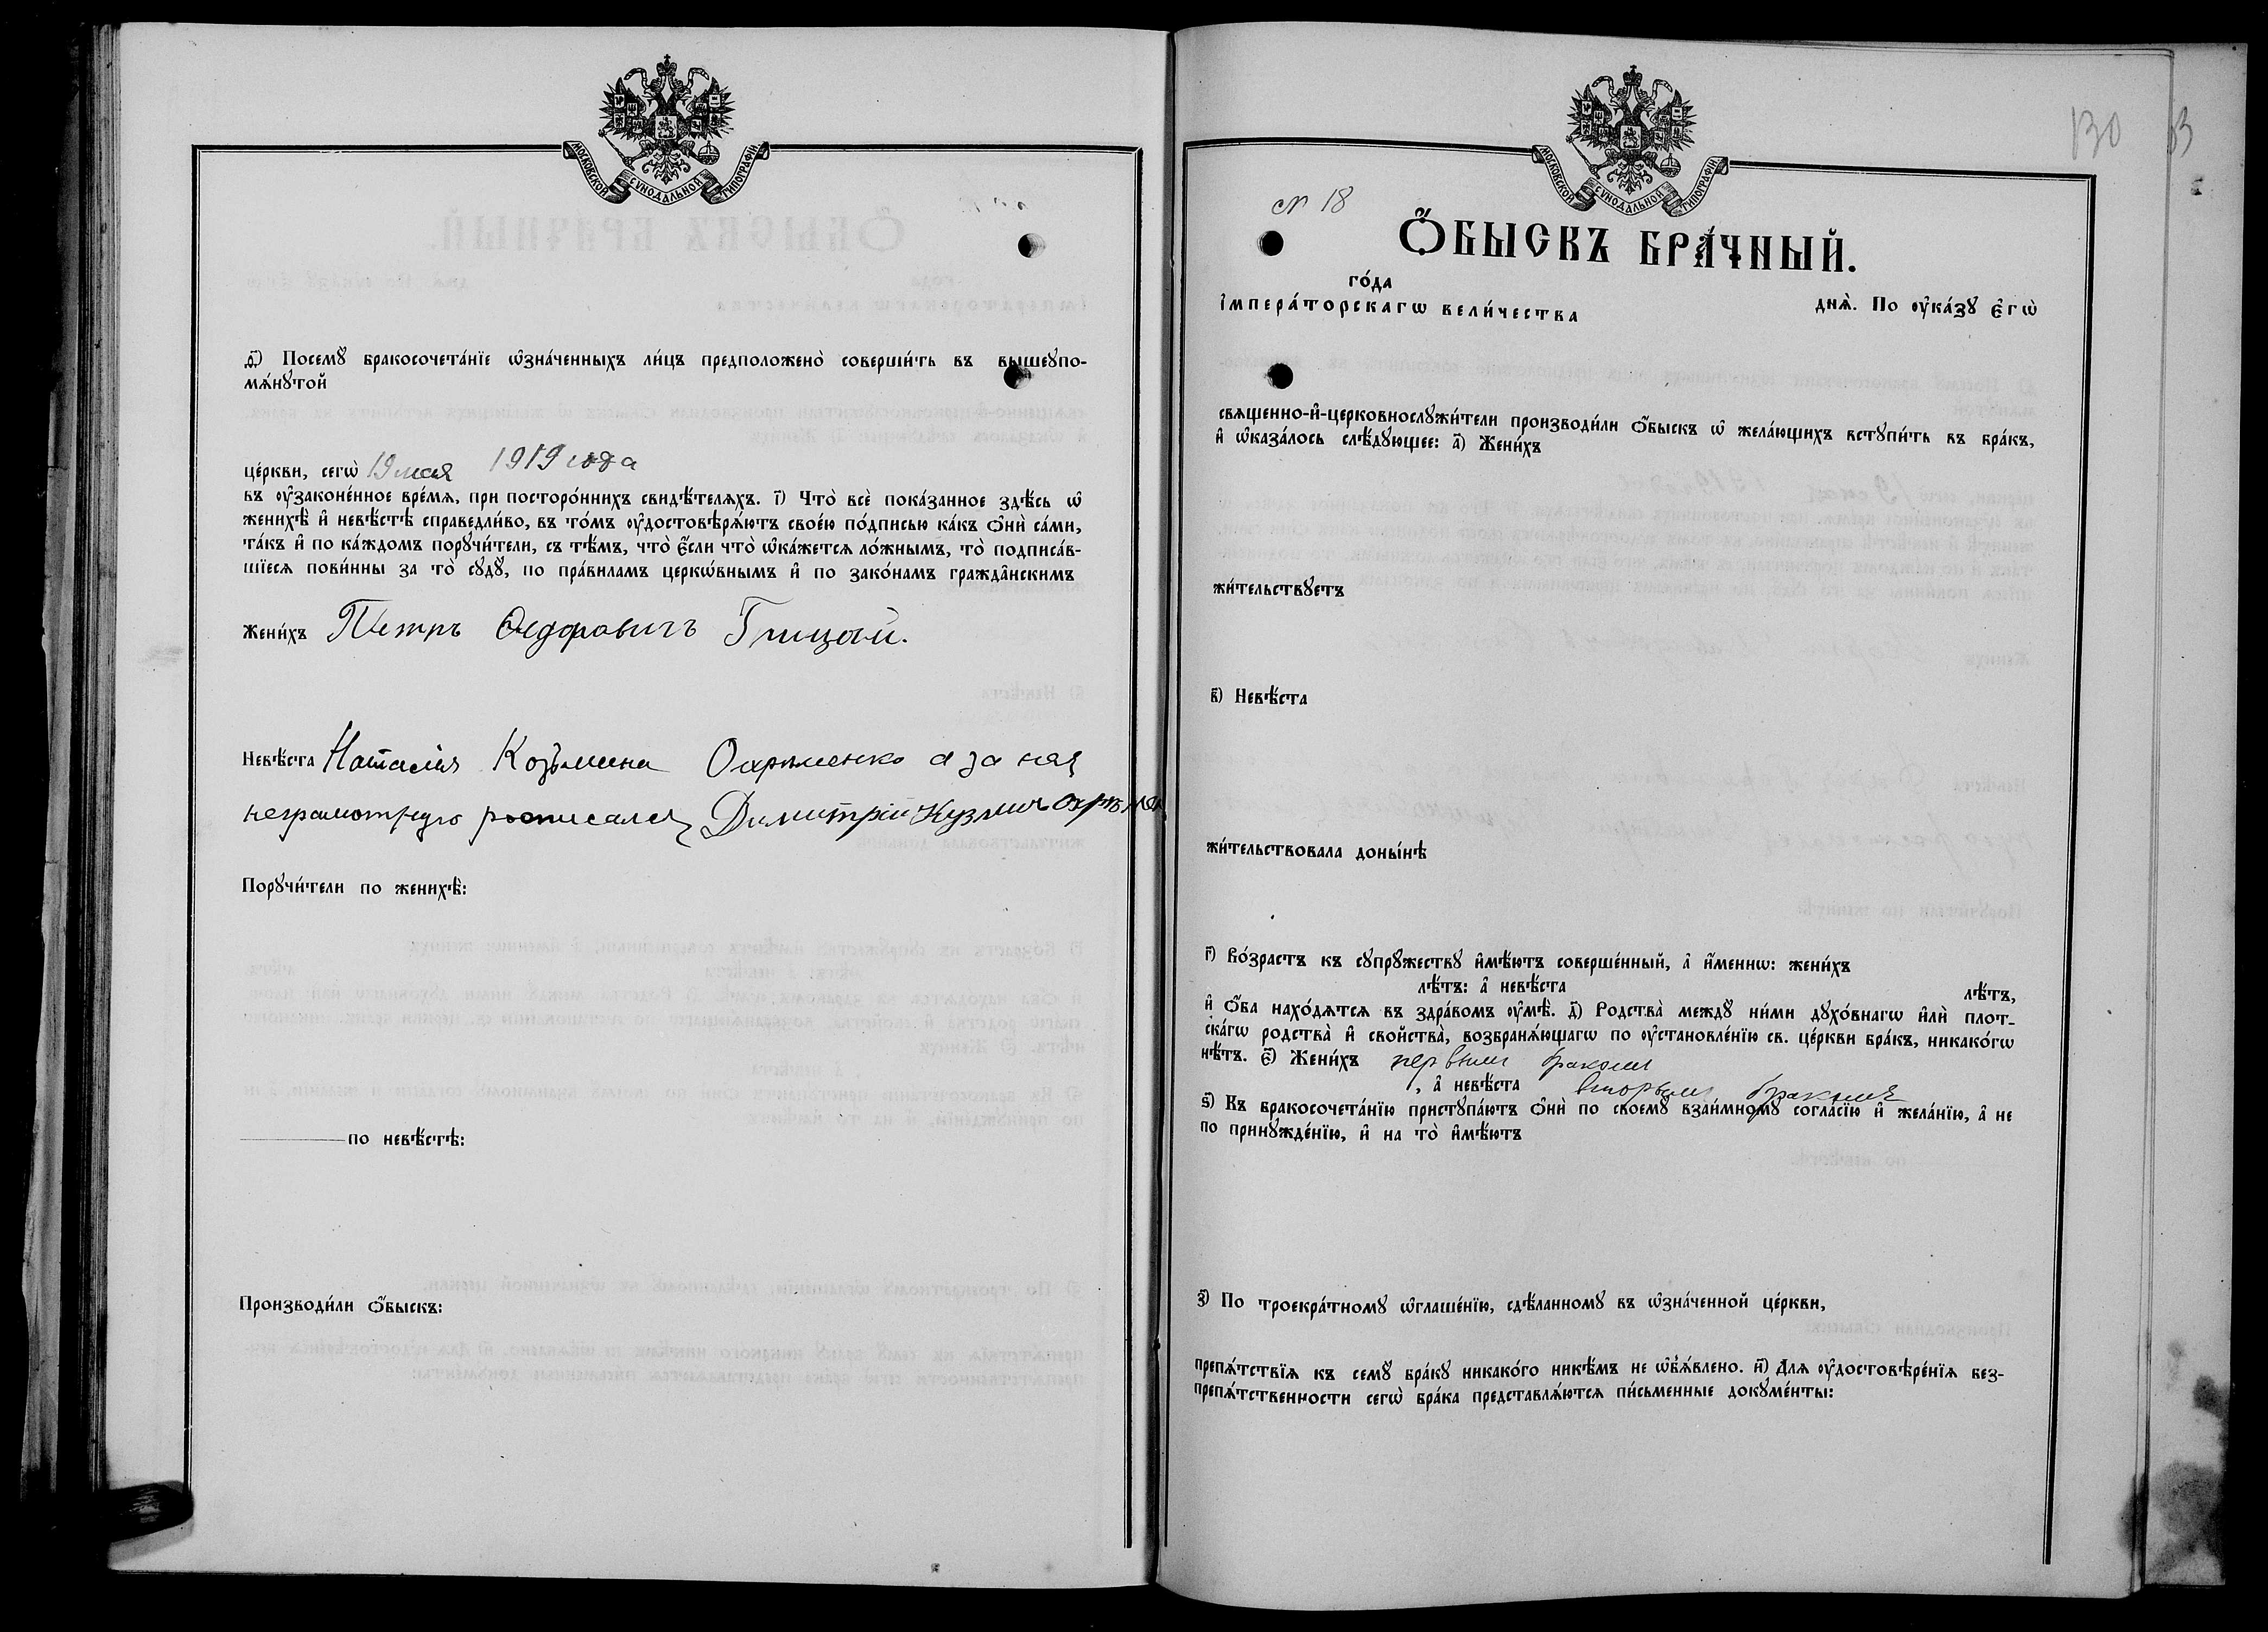 МОСКОВСКОЙ СѴНОДАЛЬНОЙ ТИПОГРАФІИ
ѳ҃) Посемꙋ̀ бракосочета́нїе ѡ҆зна́ченныхъ ли́цъ предположено̀ соверши́ть въ вышеꙋпо-
мѧ́нꙋтой
це́ркви, сегѡ̀ 19 мая 1919 года
въ ᲂу҆законе́нное вре́мѧ, при посторо́ннихъ свидѣ́телѧхъ. і҃) Что̀ всѐ пока́занное здѣ́сь ѡ҆
женихѣ̀ и҆ невѣ́стѣ справедли́во, въ то́мъ ᲂу҆достовѣрѧ́ютъ свое́ю по́дписью ка́къ ѻ҆нѝ са́ми,
та́къ и҆ по ка́ждомъ порꙋчи́тели, съ тѣ́мъ, что̀ є҆́сли что̀ ѡ҆ка́жетсѧ ло́жнымъ, то̀ подписа́в-
шїесѧ пови́нны за то̀ сꙋдꙋ̀, по пра́виламъ церкѡ́внымъ и҆ по зако́намъ гражда̑нскимъ
Жени́хъ Петръ Федоровичъ Грицай.
Невѣ́ста Наталія Козьмина Охрименко а за нея
неграмотную росписался Димитрій Кузмич
Порꙋчи́тели по женихѣ̀:
по невѣ́стѣ:
Производи́ли ѻ҆́быскъ:
130
МОСКОВСКОЙ СѴНОДАЛЬНОЙ ТИПОГРАФІИ
№ 18
Ѻ҆́БЫСКЪ БРА́ЧНЫЙ.
го́да
днѧ̀. По ᲂу҆ка́зꙋ є҆гѡ̀
і҆мпера́торскагѡ вели́чества
свѧщенно-и҆-церковнослꙋжи́тели производи́ли ѻ҆́быскъ ѡ҆ жела́ющихъ встꙋпи́ть въ бра́къ,
и҆ ѡ҆каза́лось слѣ́дꙋющее: а҃) Жени́хъ
жи́тельствꙋетъ
в҃) Невѣ́ста
жи́тельствовала доны́нѣ
г҃) Во́зрастъ къ сꙋпрꙋжествꙋ и҆мѣ́ютъ соверше́нный, а҆ и҆́меннѡ: жени́хъ
лѣ́тъ: а҆ невѣ́ста лѣ́тъ,
и҆ ѻ҆́ба нахо́дѧтсѧ въ здра́вомъ ᲂу҆мѣ̀. д҃) Родства̀ междꙋ ни́ми дꙋхо́внагѡ и҆лѝ плот-
ска́гѡ родства̀ и҆ свойства̀, возбранѧ́ющагѡ по ᲂу҆становле́нїю св. це́ркви бра́къ, никако́гѡ
нѣ́тъ. є҃) Жени́хъ первым браком
, а҆ невѣ́ста вторым браком
ѕ҃) Къ бракосочета́нїю пристꙋпа́ютъ ѻ҆нѝ по своемꙋ̀ взаи́мномꙋ согла́сїю и҆ жела́нїю, а҆ не
по принꙋжде́нїю, и҆ на то̀ и҆мѣ́ютъ
з҃) По троекра́тномꙋ ѡ҆глаше́нїю, сдѣ́ланномꙋ въ ѡ҆зна́ченной це́ркви,
препѧ́тствїѧ къ семꙋ̀ бра́кꙋ никако́го никѣ́мъ не ѡ҆б̾ѧ́влено. и҃) Длѧ ᲂу҆достовѣре́нїѧ без-
препѧ́тственности сегѡ̀ бра́ка представлѧ́ютсѧ пи́сьменные докꙋме́нты: